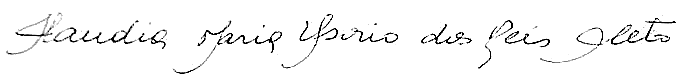 Claudia Maria Osorio dos Reis Neto